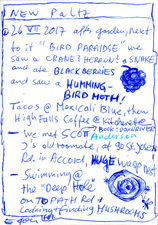 NEW PALTZ
26 VII 2017 after garden, next
to it "BIRD PARADISE" we
saw a CRANE? HERON? a SNAKE
and ate BLACKBERRIES
and saw a HUMMING-
BIRD MOTH!
Tacos @ Mexicali Blue, then
High Falls Coffee @ Kitchenette
— We met SCOTT
Anderson
J's old roommate, at 90
Rd. in Accord, HUGE WASP NEST
— Swimming @
the "Deep Hole"
on TOWPATH Rd +
Cooking + finding MUSHROOMS